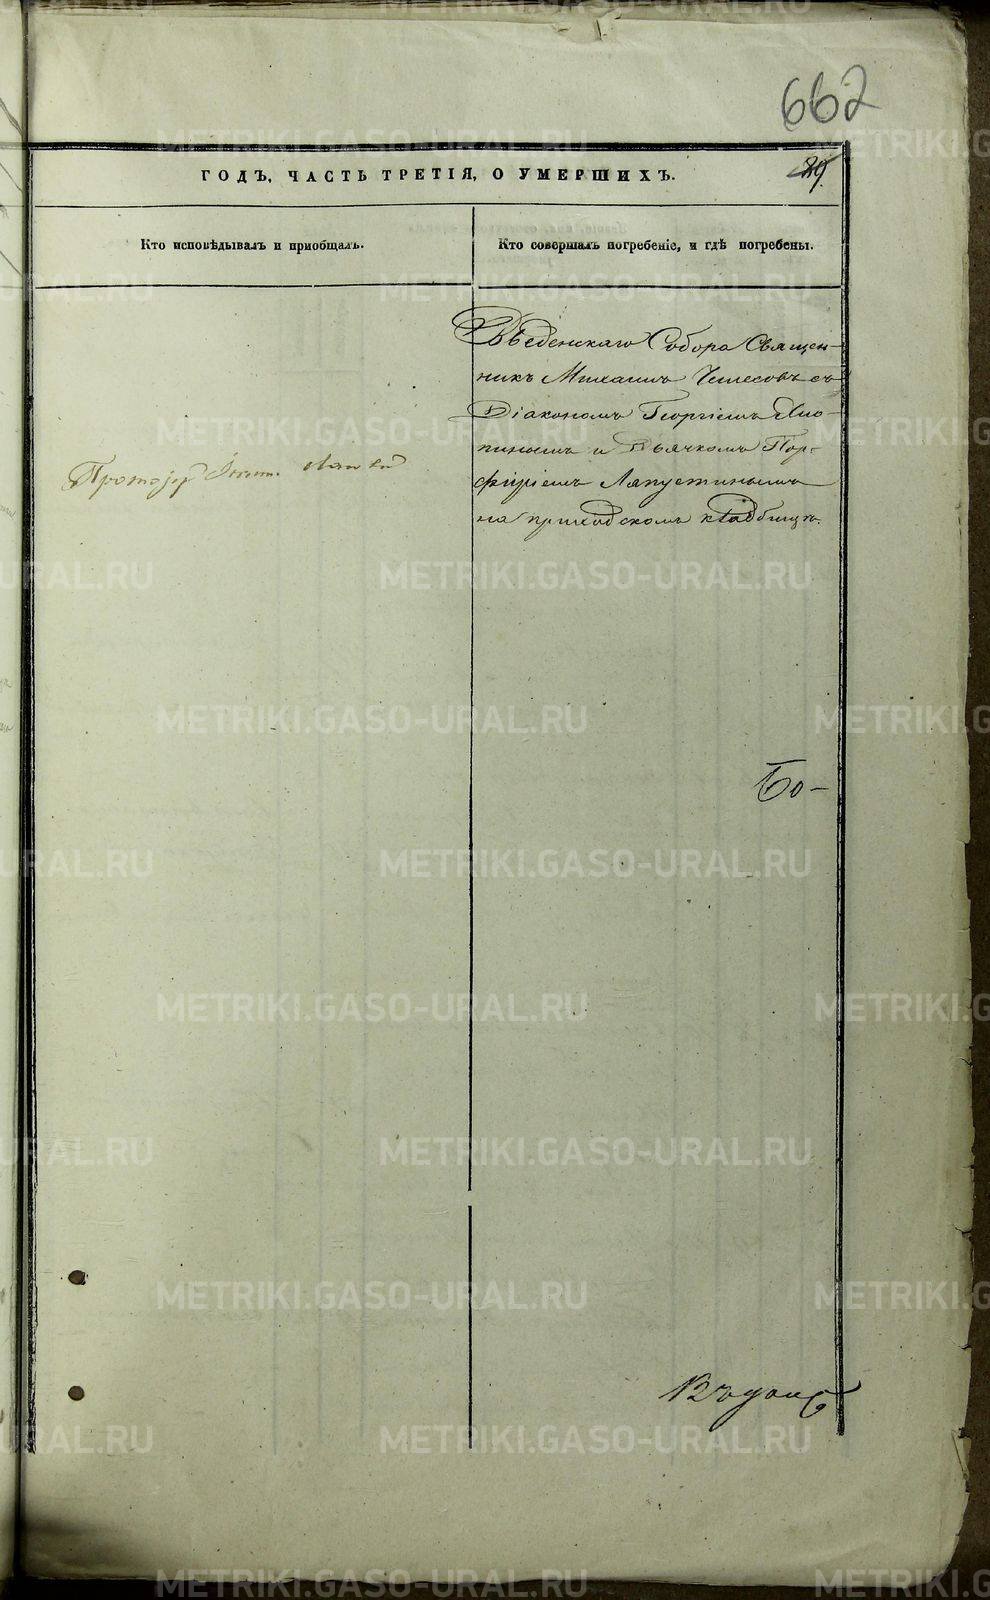 662
29.
ГОДЪ, ЧАСТЬ ТРЕТІЯ, О УМЕРШИХЪ.
Кто исповѣдывалъ и пріобщалъ.
Кто совершалъ погребеніе, и гдѣ погребены.
Протоіер
Введенскаго Собора Священ-
никъ Михаилъ съ
Діакономъ Георгіемъ
и Дьячкомъ Пор-
фиріемъ Ляпустинымъ
на приходскомъ кладбищѣ.
Бо-
METRIKI.GASO-URAL.RU